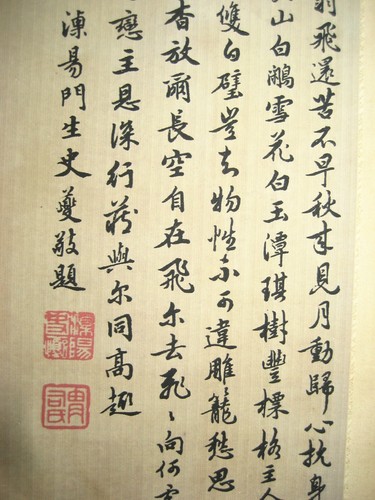 飛還苦不早秋來見月動歸心抗身
山白鷴雪花白玉潭琪樹豐標格主人
雙白璧豈知物性可違雕籠愁思
杳放爾長空自在飛尔去飛〻向何
戀主恩深行藏與尔同高趣
溧昜門生史夔敬題